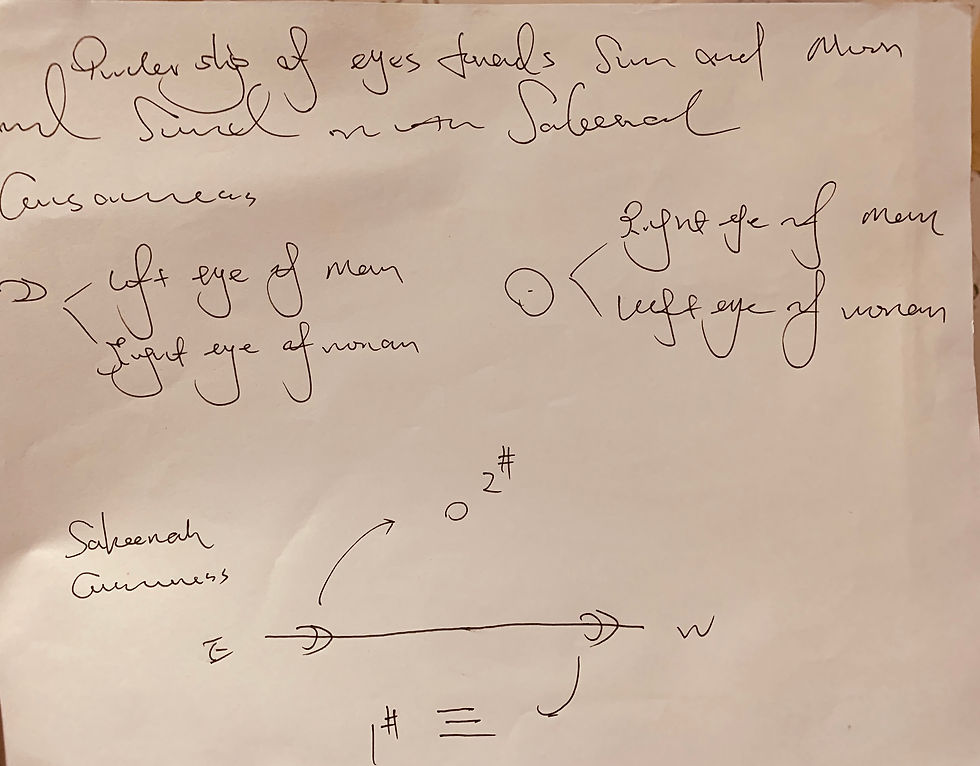 of eyes towards Sun and Moon
and Sakeenah
Consciousness
☽ Left eye of man
Right eye of woman
☉ Right eye of man
Left eye of woman
2#
Sakeenah
Consciousness
E W
1#